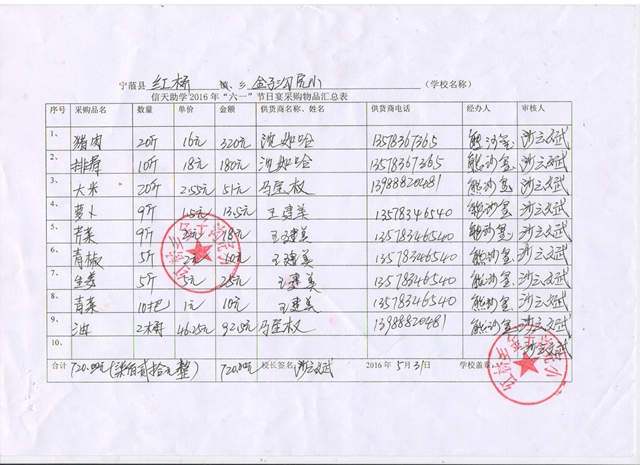 宁蒗县 红桥 镇、乡 金子沟完小 (学校名称)
信天助学2016年“六一”节日宴采购物品汇总表
序号 采购品名 数量 单价 金额 供货商名称、姓名 供货商电话 经办人 审核人
1、 猪肉 20斤 16元 320元 13578367365 熊沙金 沙云文武
2、 排骨 10斤 18元 180元 13578367365 熊沙金 沙云文武
3、 大米 20斤 2.55元 51元 马星权 13988820481 熊沙金 沙云文武
4、 萝卜 9斤 1.5元 13.5元 王建美 13578346540 熊沙金 沙云文武
5、 芹菜 9斤 2元 18元 王建美 13578346540 熊沙金 沙云文武
6、 青椒 5斤 2元 10元 王建美 13578346540 熊沙金 沙云文武
7、 生姜 5斤 5元 25元 王建美 13578346540 熊沙金 沙云文武
8、 青菜 10把 1元 10元 王建美 13578346540 熊沙金 沙云文武
9、 油 2桶 46.25元 92.5元 马星权 13988820481 熊沙金 沙云文武
10、 沙云文武
合计 720.00元(柒佰贰拾元整) 720.00元 校长签名: 沙云文武 2016年5月31日 学校盖章: